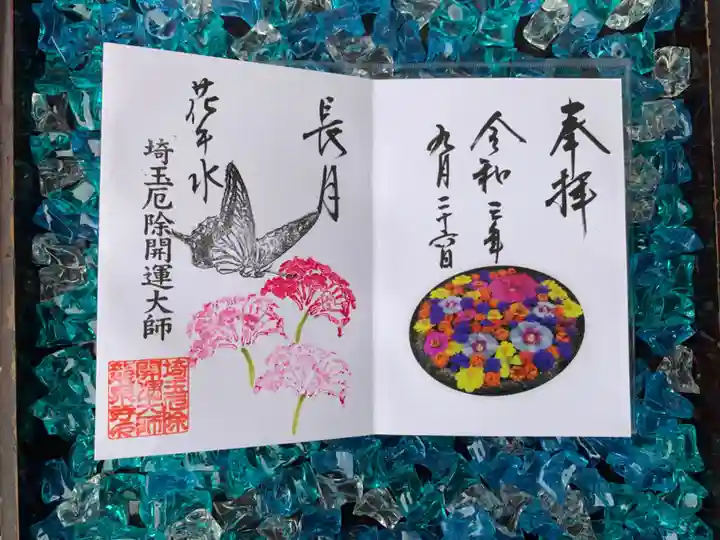 奉拝
令和三年
九月二十六日
長月
花手水
埼玉厄除開運大師
埼玉厄除
開運大師
龍泉寺印